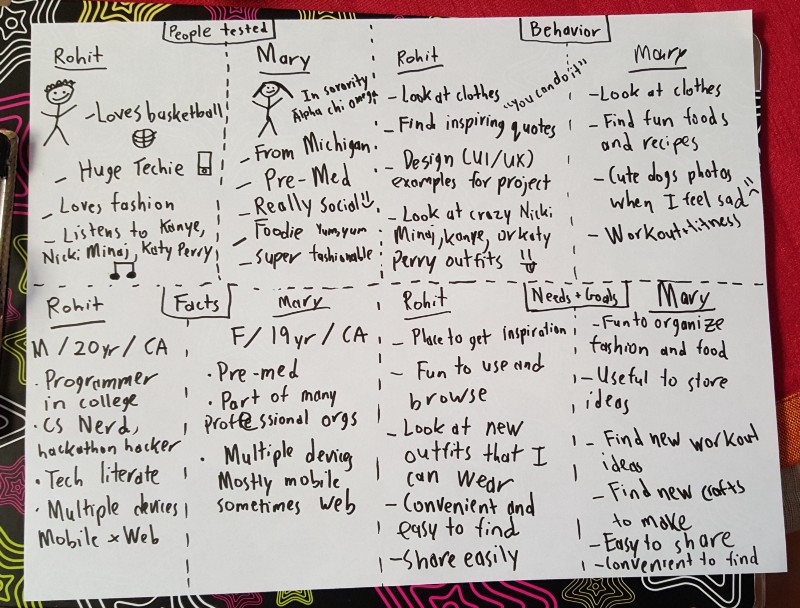 People tested
Rohit
- Loves basketball
- Huge Techie
- Loves fashion
- Listens to Kanye,
Nicki Minaj, Katy Perry
Mary
In sorority
Alpha chi omega
- From Michigan.
- Pre-Med
- Really Social
- Foodie Yumyum
- super fashionable
Behavior
Rohit
- Look at clothes
"you can do it"
- Find inspiring quotes
- Design (UI/UX)
examples for project
- Look at crazy Nicki
Minaj, Kanye, or Katy
Perry outfits
Mary
- Look at clothes
- Find fun foods
and recipes
- Cute dogs photos
when I feel sad
- Workout + fitness
Facts
Rohit
M / 20yr / CA
• Programmer
in college
• CS Nerd,
hackathon hacker
• Tech literate
• Multiple devices
Mobile x Web
Mary
F / 19yr / CA
• Pre-med
• Part of many
proffessional orgs
• Multiple devices
Mostly mobile
sometimes web
Needs + Goals
Rohit
- Place to get inspiration
- Fun to use and
browse
- Look at new
outfits that I
can wear
- Convenient and
easy to find
- Share easily
Mary
- Fun to organize
fashion and food
- Useful to store
ideas
- Find new workout
ideas
- Find new crafts
to make
- Easy to share
- Convenient to find